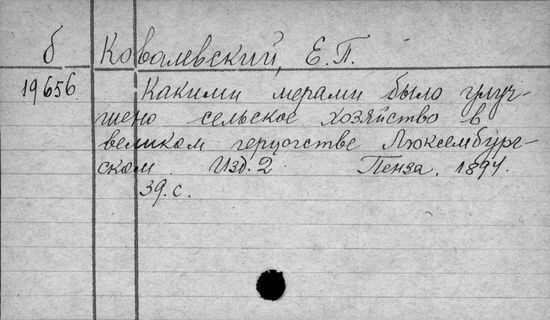 б Ковалевский, Е.П.
19656. Какими мерами было улуч-
шено сельское хозяйство в
великом герцогстве Люксембург-
ском. Изд. 2. Пенза. 1897.
39. с.